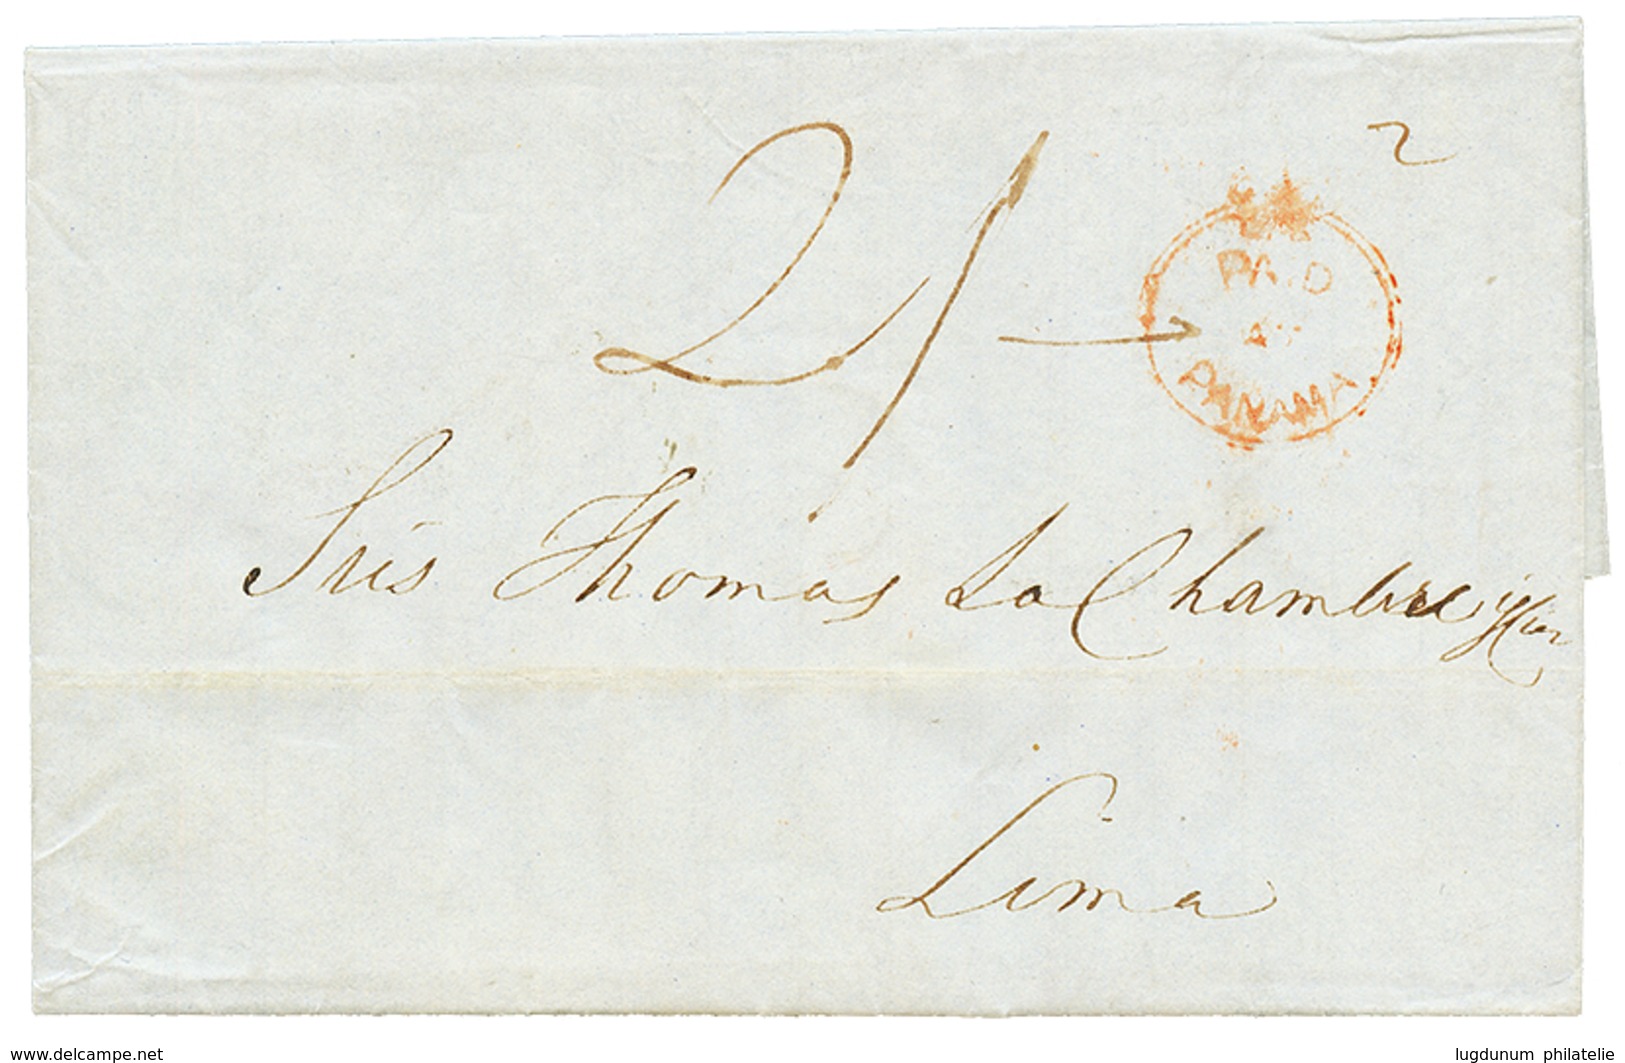 2
2/-
PAID
AT
PANAMA
Sres Thomas La Chambre y Cia
Lima
www.delcampe.net
lugdunum philatelie